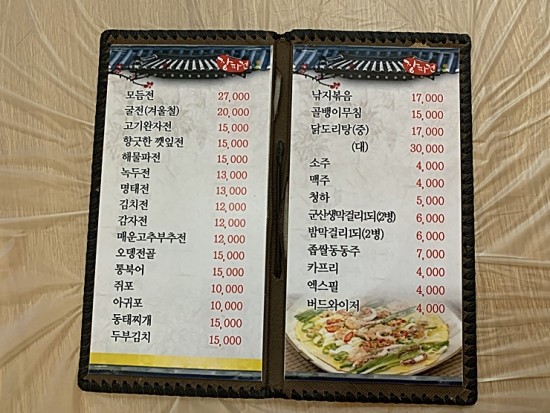 모듬전 27,000
굴전(겨울철) 20,000
고기완자전 15,000
향긋한 깻잎전 15,000
해물파전 15,000
녹두전 13,000
명태전 13,000
김치전 12,000
감자전 12,000
매운고추부추전 12,000
오뎅전골 15,000
통북어 15,000
쥐포 10,000
아귀포 10,000
동태찌개 15,000
두부김치 15,000
낙지볶음 17,000
골뱅이무침 15,000
닭도리탕(중) 17,000
(대) 30,000
소주 4,000
맥주 4,000
청하 5,000
군산생막걸리1되(2병) 6,000
밤막걸리1되(2병) 6,000
좁쌀동동주 7,000
카프리 4,000
엑스필 4,000
버드와이저 4,000